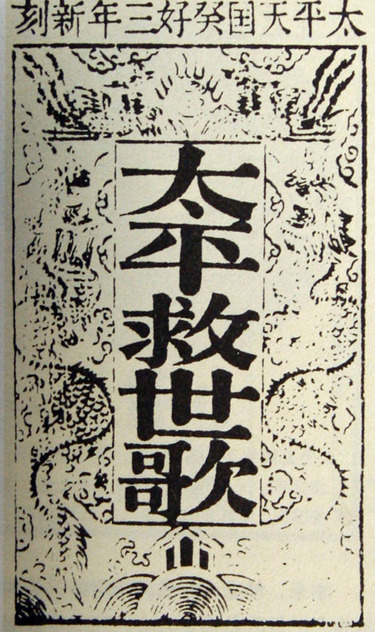 太平天囯癸好三年新刻
太平救世歌